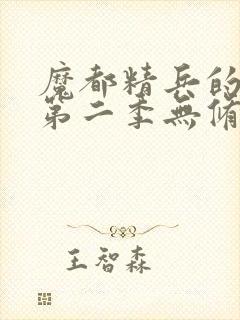 魔都精兵的
第二季無脩
王智森